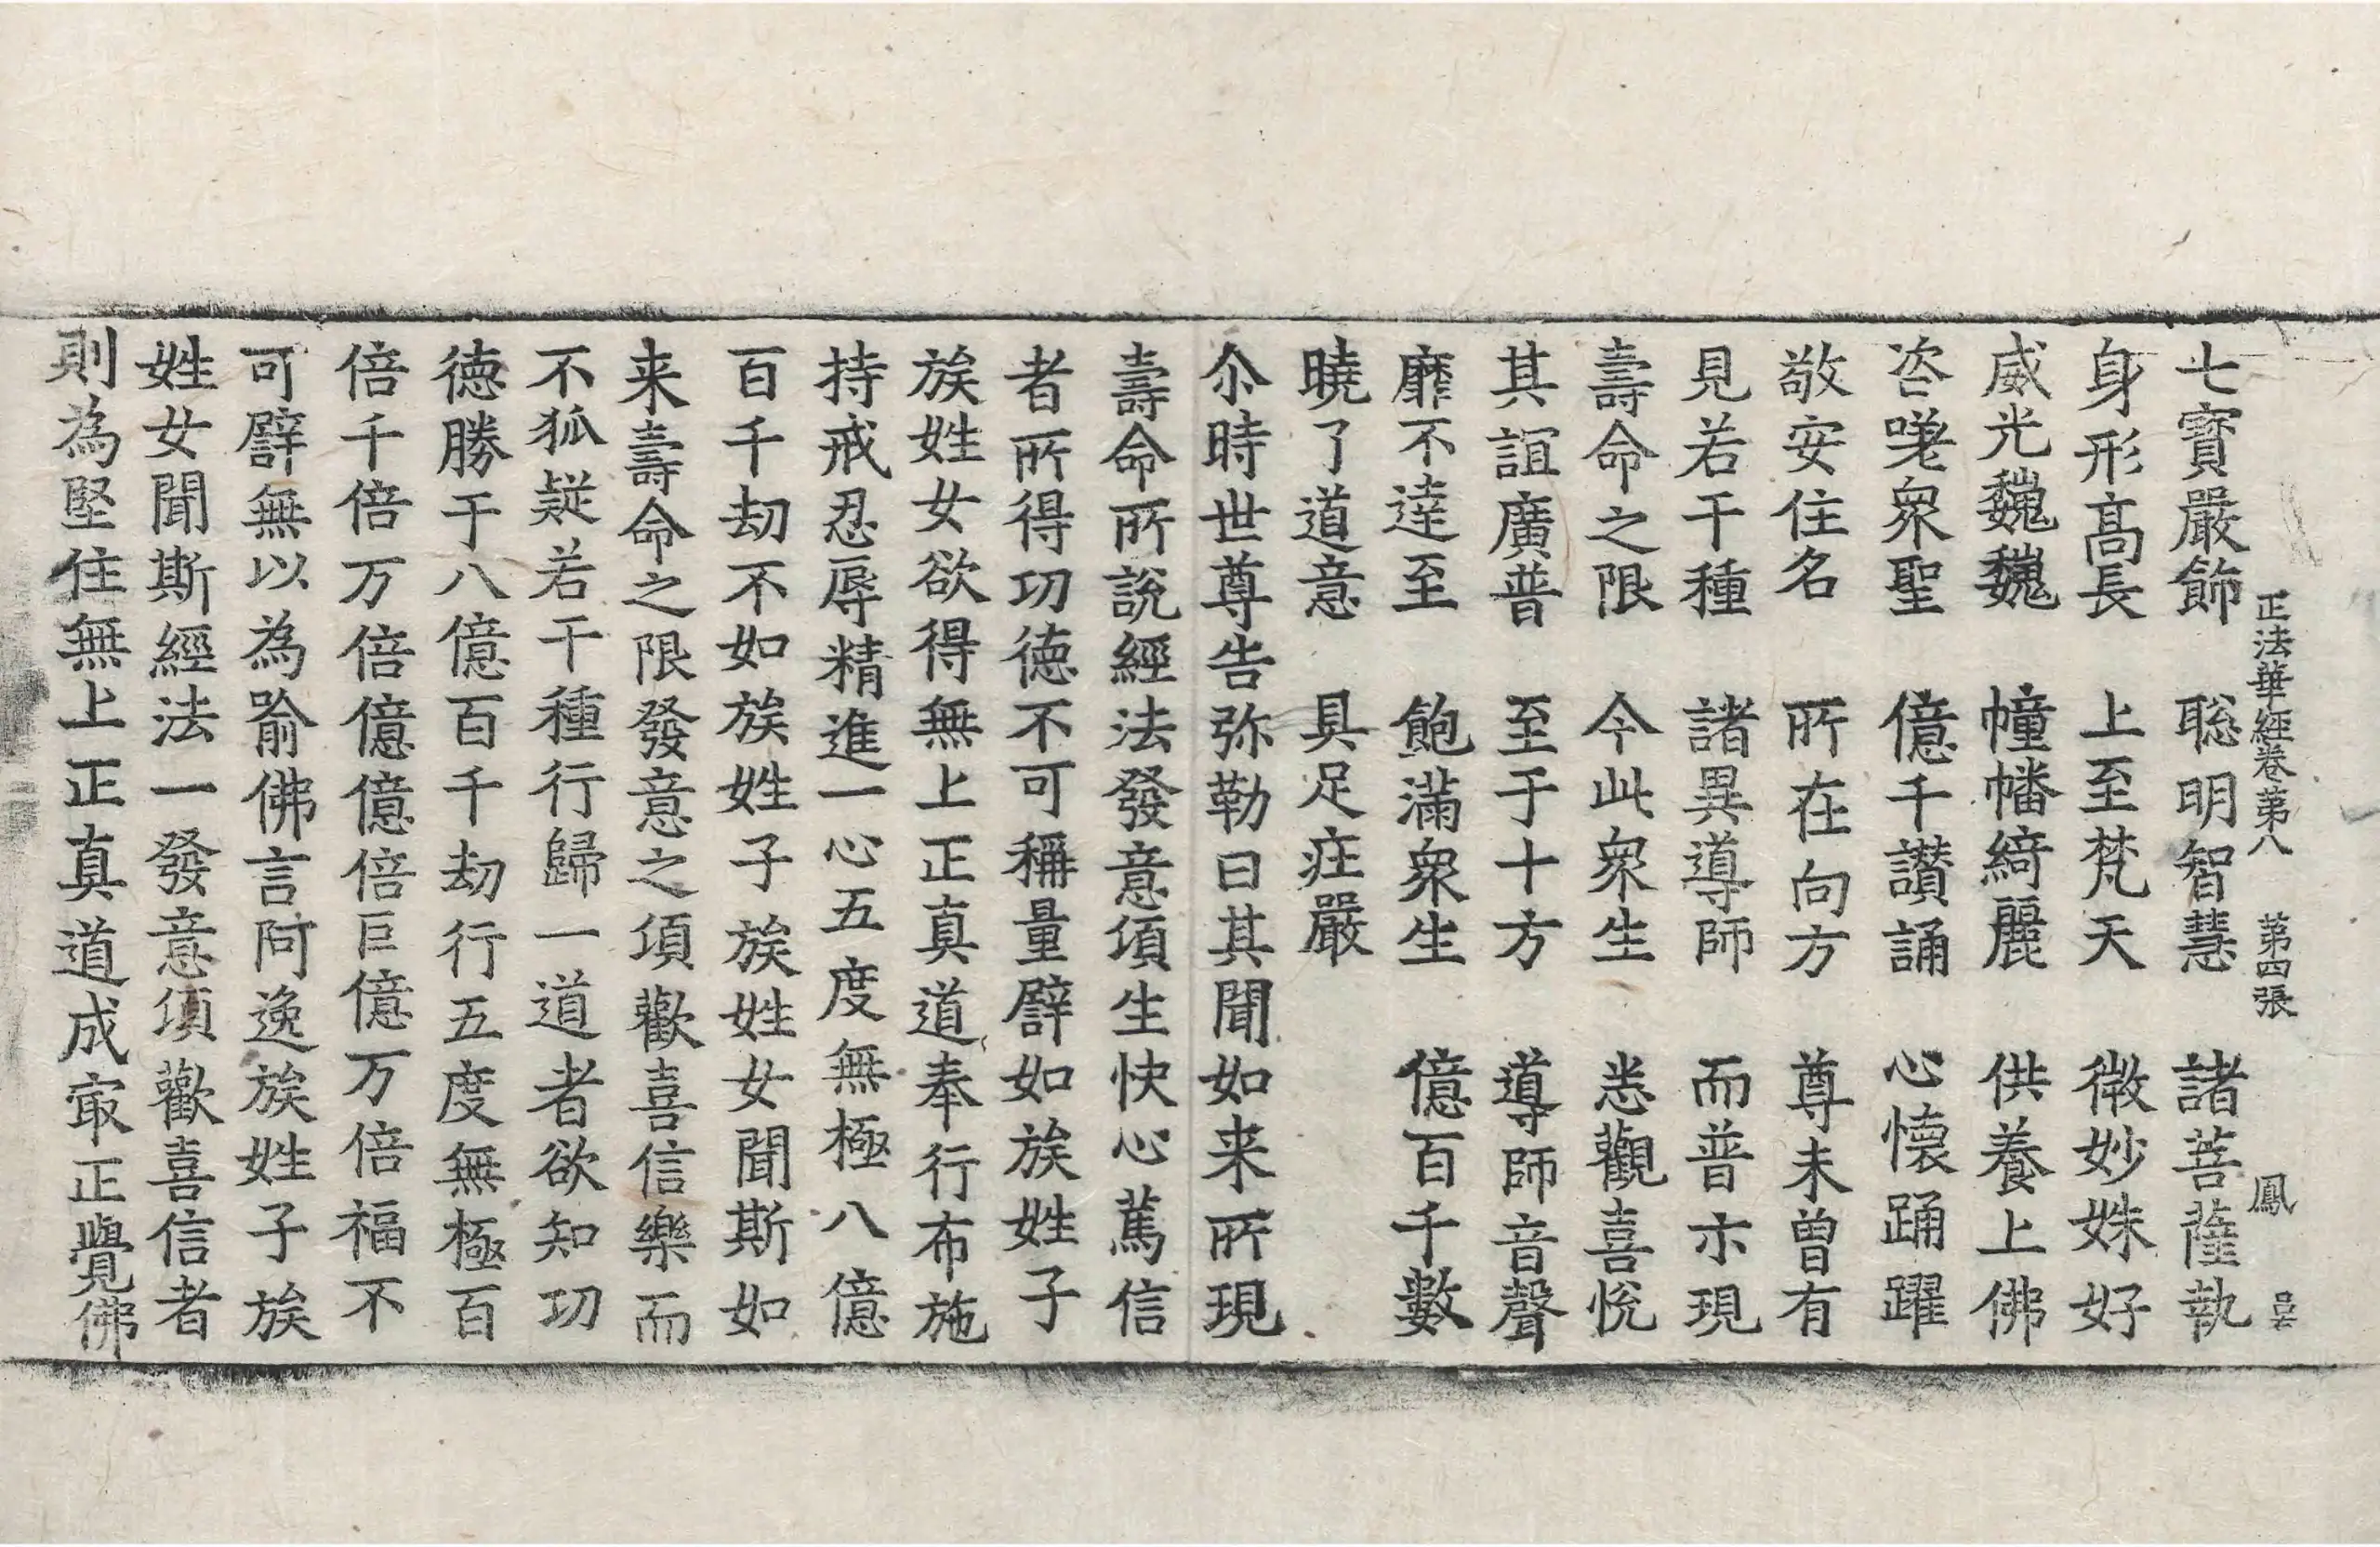 正法華經卷第八 第四張 鳳
七寶嚴飾 聡明智慧 諸菩薩執
身形髙長 上至梵天 微妙姝好
威光巍巍 幢幡綺麗 供養上佛
咨嗟衆聖 億千讃誦 心懐踊躍
敬安住名 所在向方 尊未曽有
見若干種 諸異導師 而普示現
壽命之限 今此衆生 悉觀喜悅
其誼廣普 至于十方 導師音聲
靡不達至 飽滿衆生 億百千數
曉了道意 具足庄嚴
尒時世尊告弥勒曰其聞如来所現
壽命所說經法發意須生快心篤信
者所得功徳不可稱量譬如族姓子
族姓女欲得無上正真道奉行布施
持戒忍辱精進一心五度無極八億
百千劫不如族姓子族姓女聞斯如
来壽命之限發意之須歡喜信樂而
不狐疑若干種行歸一道者欲知功
徳勝于八億百千劫行五度無極百
倍千倍万倍億億倍巨億万倍福不
可譬無以為喻佛言阿逸族姓子族
姓女聞斯經法一發意須歡喜信者
則為堅住無上正真道成㝡正覺佛